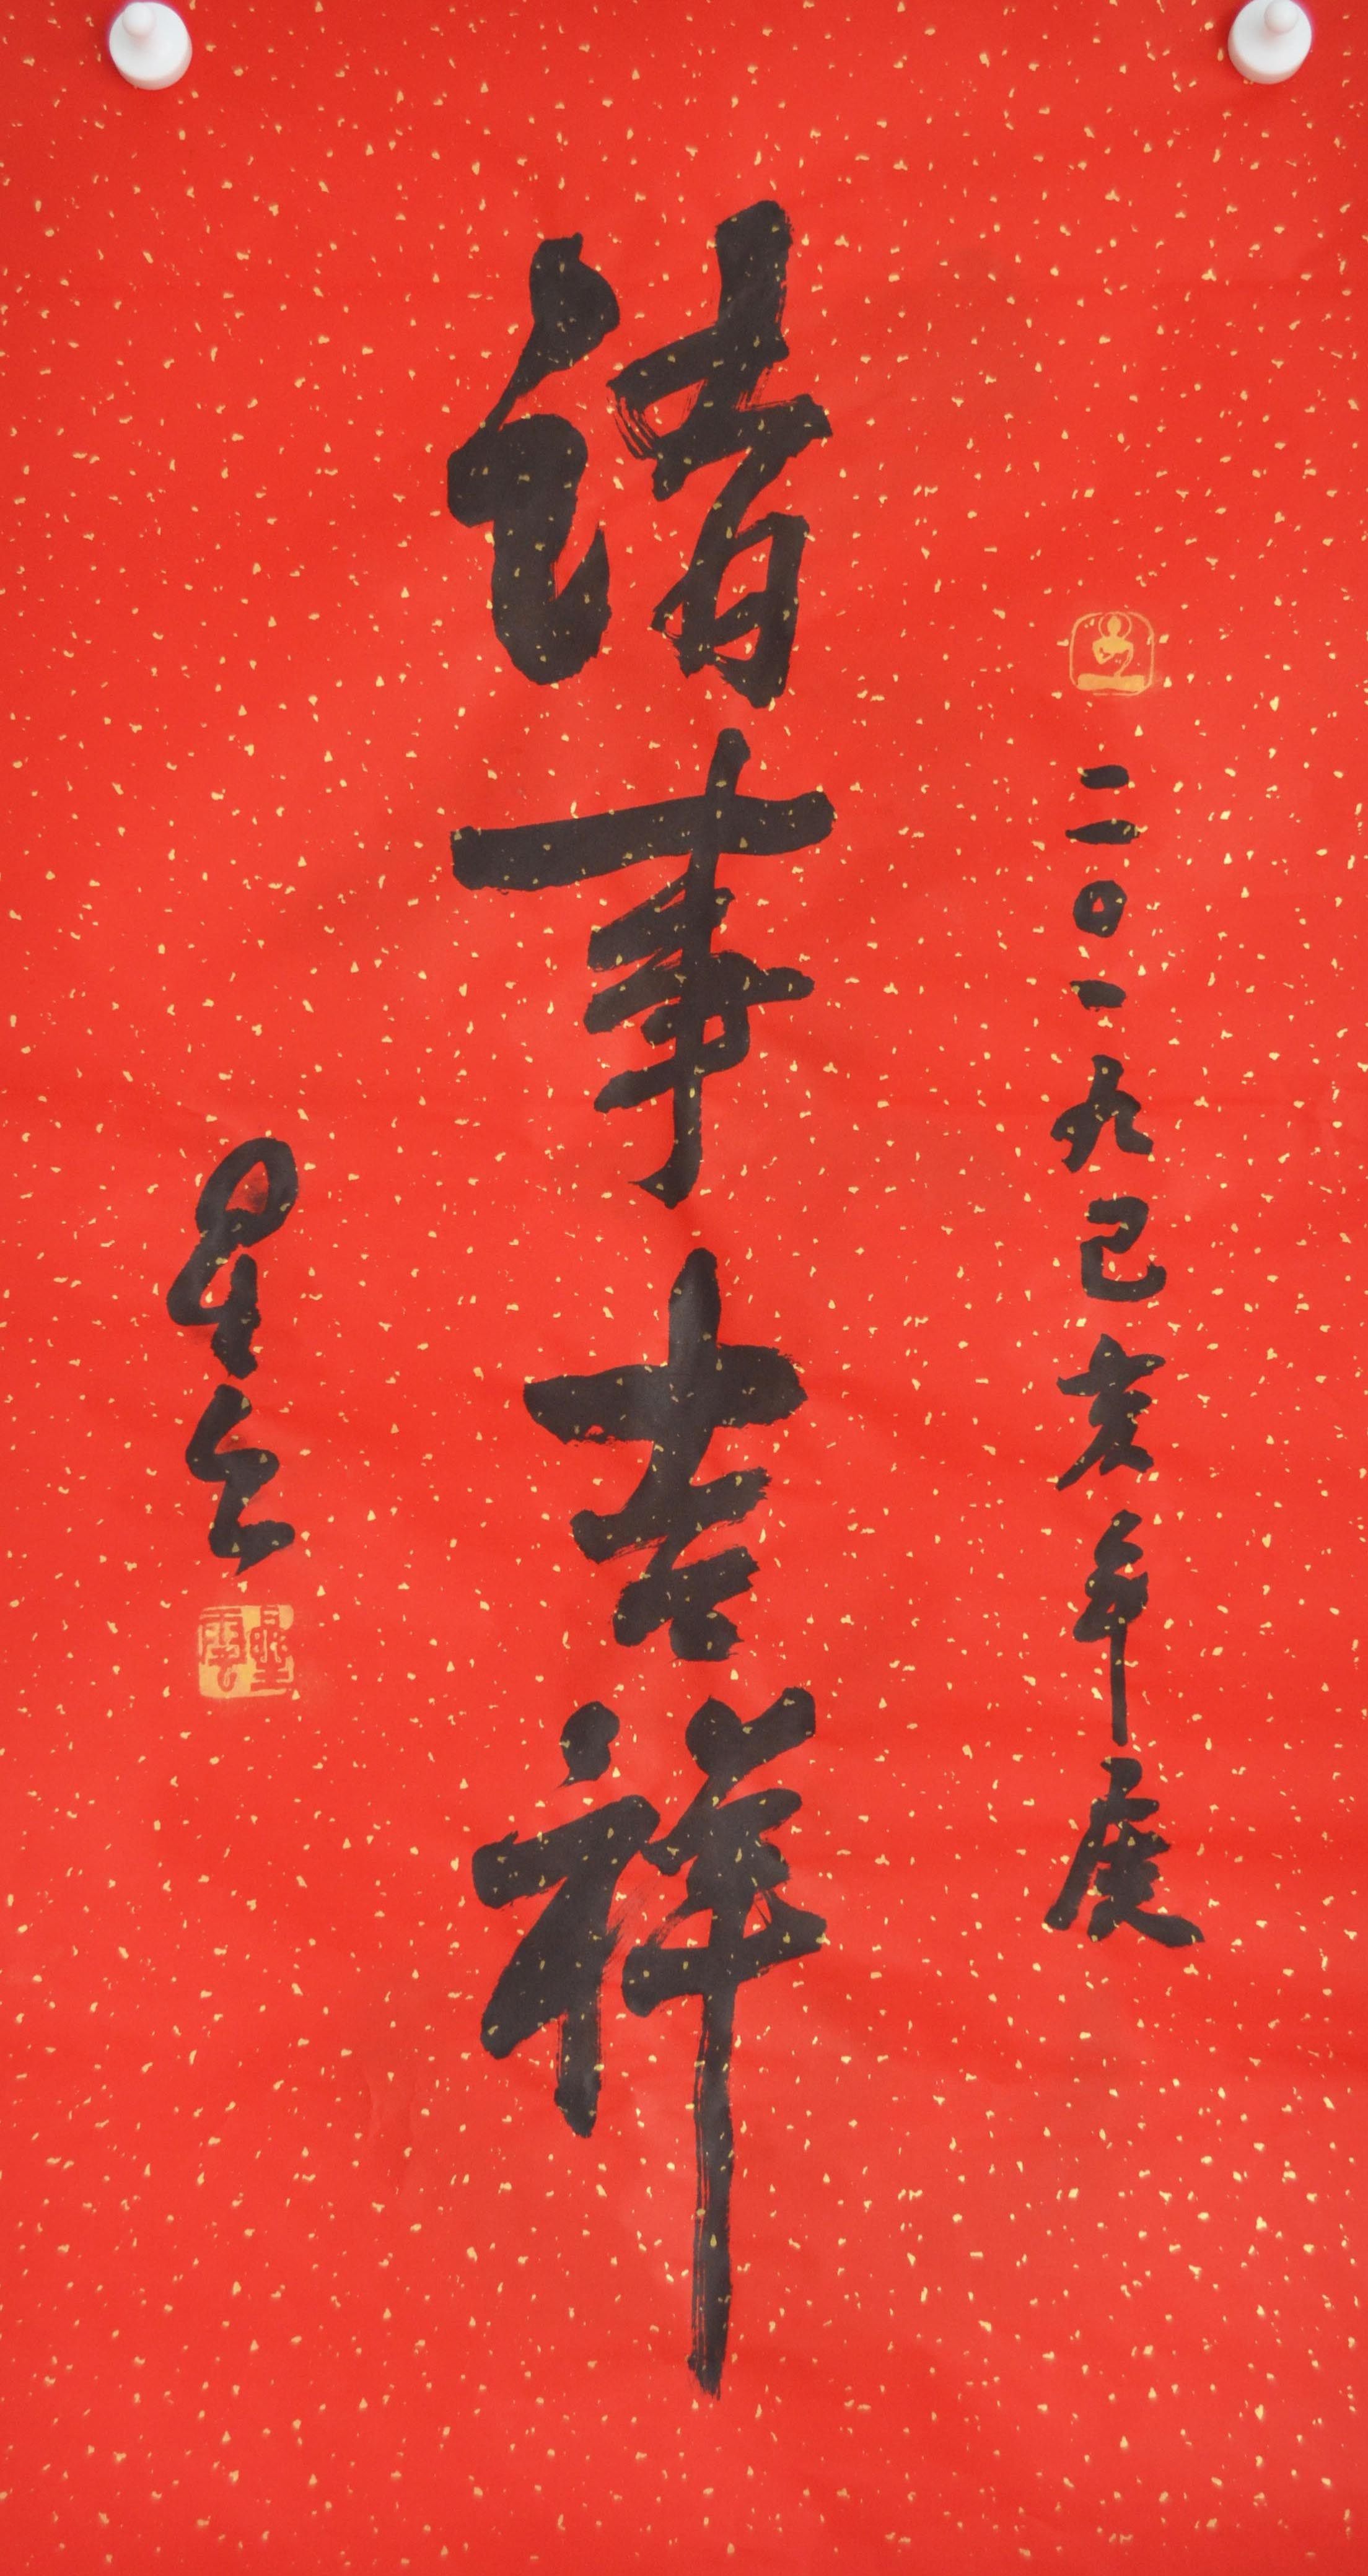 二〇一九己亥年度
諸事吉祥
星云
星雲